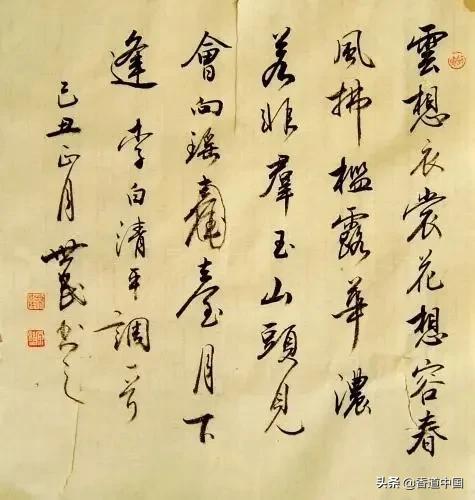 雲想衣裳花想容春
風拂檻露華濃
若非羣玉山頭見
會向瑤臺月下
逢 李白清平調一首
己丑正月 世民书之
头条 @香道中国